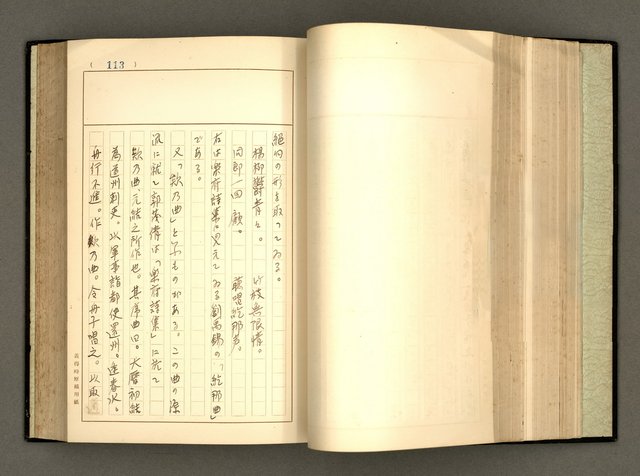 ( 113 )
絶句の形を取つてゐる。
楊柳鬱青々。 竹枝無限情。
同郎一回顧。 聴唱紇那聲。
右は樂府詩集に見えてゐる劉禹錫の「紇那曲」
である。
又「欸乃曲」と云ふものがある。この曲の源
流に就て郭茂倩は「樂府詩集」に於て
欸乃曲、元結之所作也。其序曲曰。大暦初結
為道州刺史。以軍事詣都使還州。逢春水。
舟行不進。作欸乃曲。令舟子唱之。以取適
黃得時原稿用紙